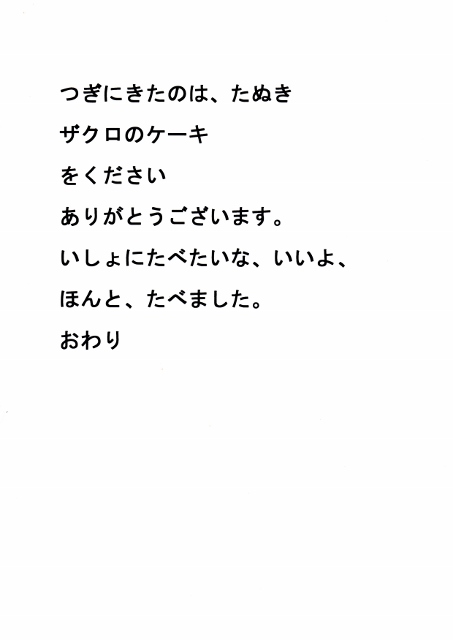 つぎにきたのは、たぬき
ザクロのケーキ
をください
ありがとうございます。
いしょにたべたいな、いいよ、
ほんと、たべました。
おわり